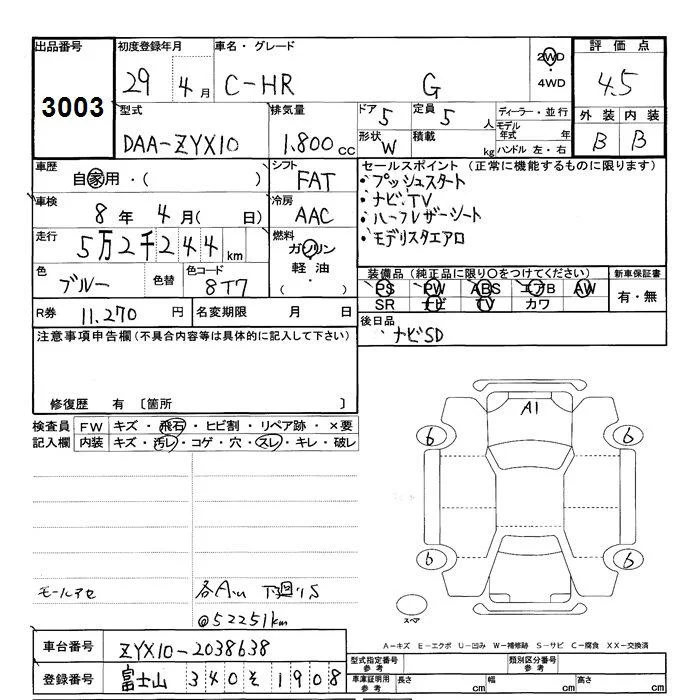 出品番号
3003
初度登録年月
29 4月
車名・グレード
C-HR G
2WD
・
4WD
評価点
4.5
型式
DAA-ZYX10
排気量
1.800cc
ドア 5
定員 5人
形状 W
積載 kg
ディーラー・並行
モデル
年式 年
ハンドル 左・右
外装 内装
B B
車歴
自家用・( )
シフト
FAT
車検
8年 4月( 日)
冷房
AAC
走行
5万2千244km
燃料
ガソリン
軽油
( ・ )
色
ブルー
色替
色コード
8T7
R券 11.270円
名変期限 月 日
セールスポイント (正常に機能するものに限ります)
・プッシュスタート
・ナビ.TV
・ハーフレザーシート
・モデリスタエアロ
装備品 (純正品に限り〇をつけてください)
PS PW ABS エアB AW
SR ナビ TV カワ
新車保証書
有・無
後日品
・ナビSD
注意事項申告欄(不具合内容等は具体的に記入して下さい)
修復歴 有 〔箇所 〕
検査員 FW キズ・飛石・ヒビ割・リペア跡・×要
記入欄 内装 キズ・汚レ・コゲ・穴・スレ・キレ・破レ
A1
6 6
6 6
スペア
モールアセ
各AU 下廻りS
@52251km
A-キズ E-エクボ U-凹み W-補修跡 S-サビ C-腐食 XX-交換済
車台番号 ZYX10-2038638
登録番号 富士山 340 そ 1908
型式指定番号
参考
類別区分番号
参考
車庫証明用
参考
長さ cm
幅 cm
高さ cm